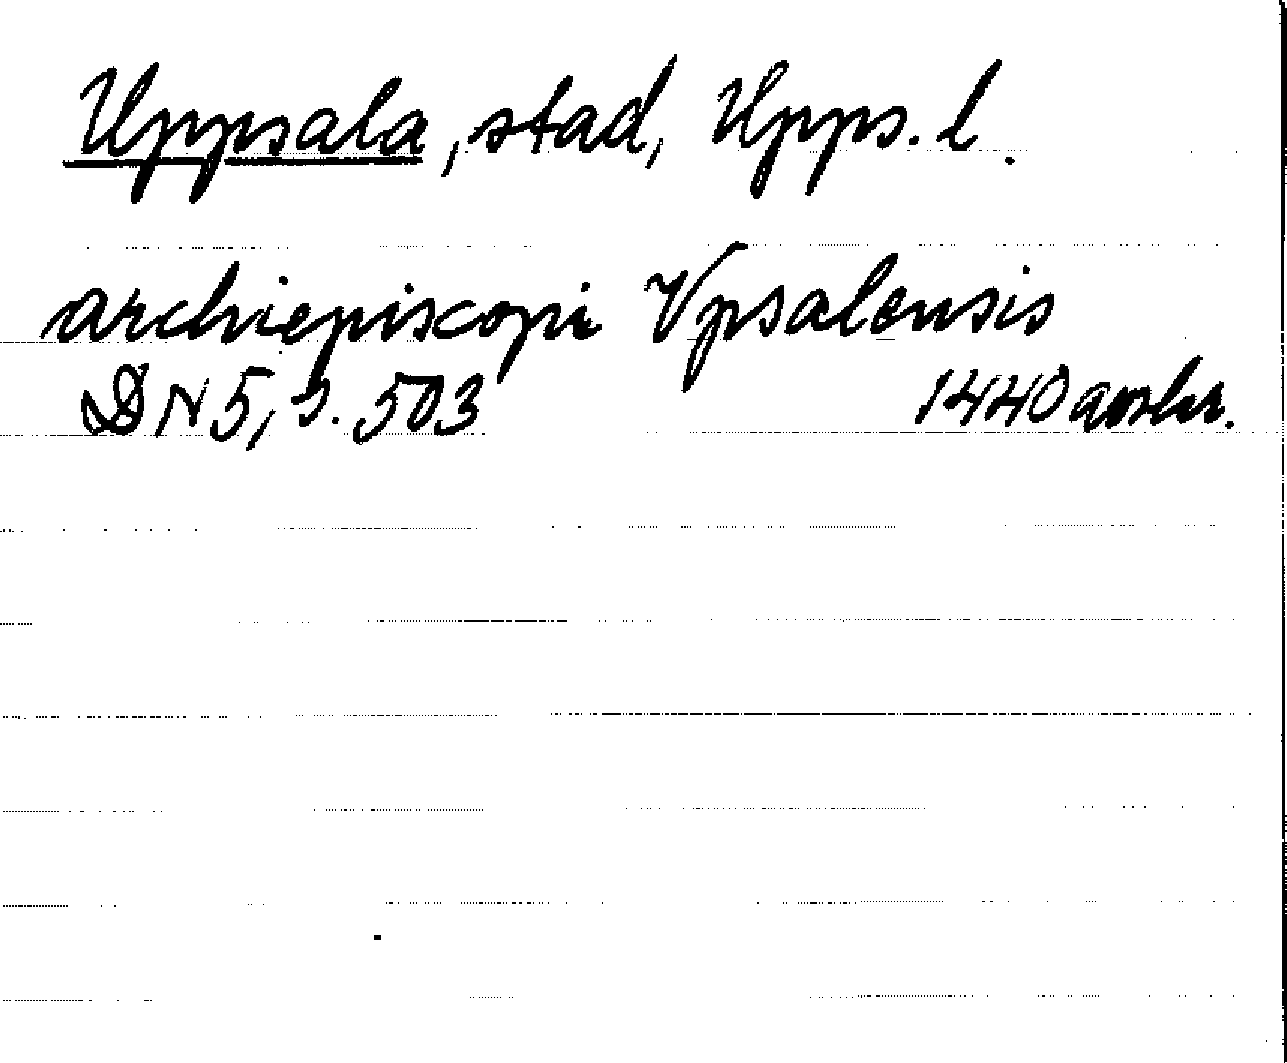 Uppsala, stad, Upps. l.
archiepiscopi Vpsalensis
DN 5, s. 503 1440 avskr.